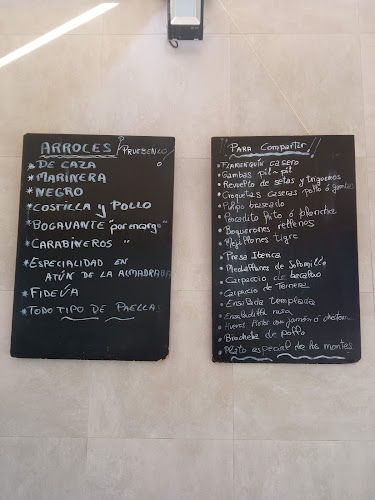 ARROLES ¡PRUEBENLO!
* DE CAZA
* MARINERA
* NEGRO
* COSTILLA y POLLO
* BOGAVANTE "por encargo"
* CARABINEROS "
* ESPECIALIDAD EN
ATÚN DE LA ALMADRABA
* FIDEUA
* TODO TIPO DE PAELLAS
PARA Compartir!!
FLAMENQUÍN CASERO
Gambas pil-pil
Revuelto de setas y trigueros
Croquetas caseras pollo ó gambas
Pulpo braseado
Pescadito frito ó plancha
Boquerones rellenos
Mejillones tigre
Presa Iberica
Medallones de Solomillo
Carpaccio de bacalao
Carpaccio de Ternera
Ensalada templada
Ensaladilla rusa
Huevos Rotos con jamón ó
Brocheta de pollo
Plato especial de los montes